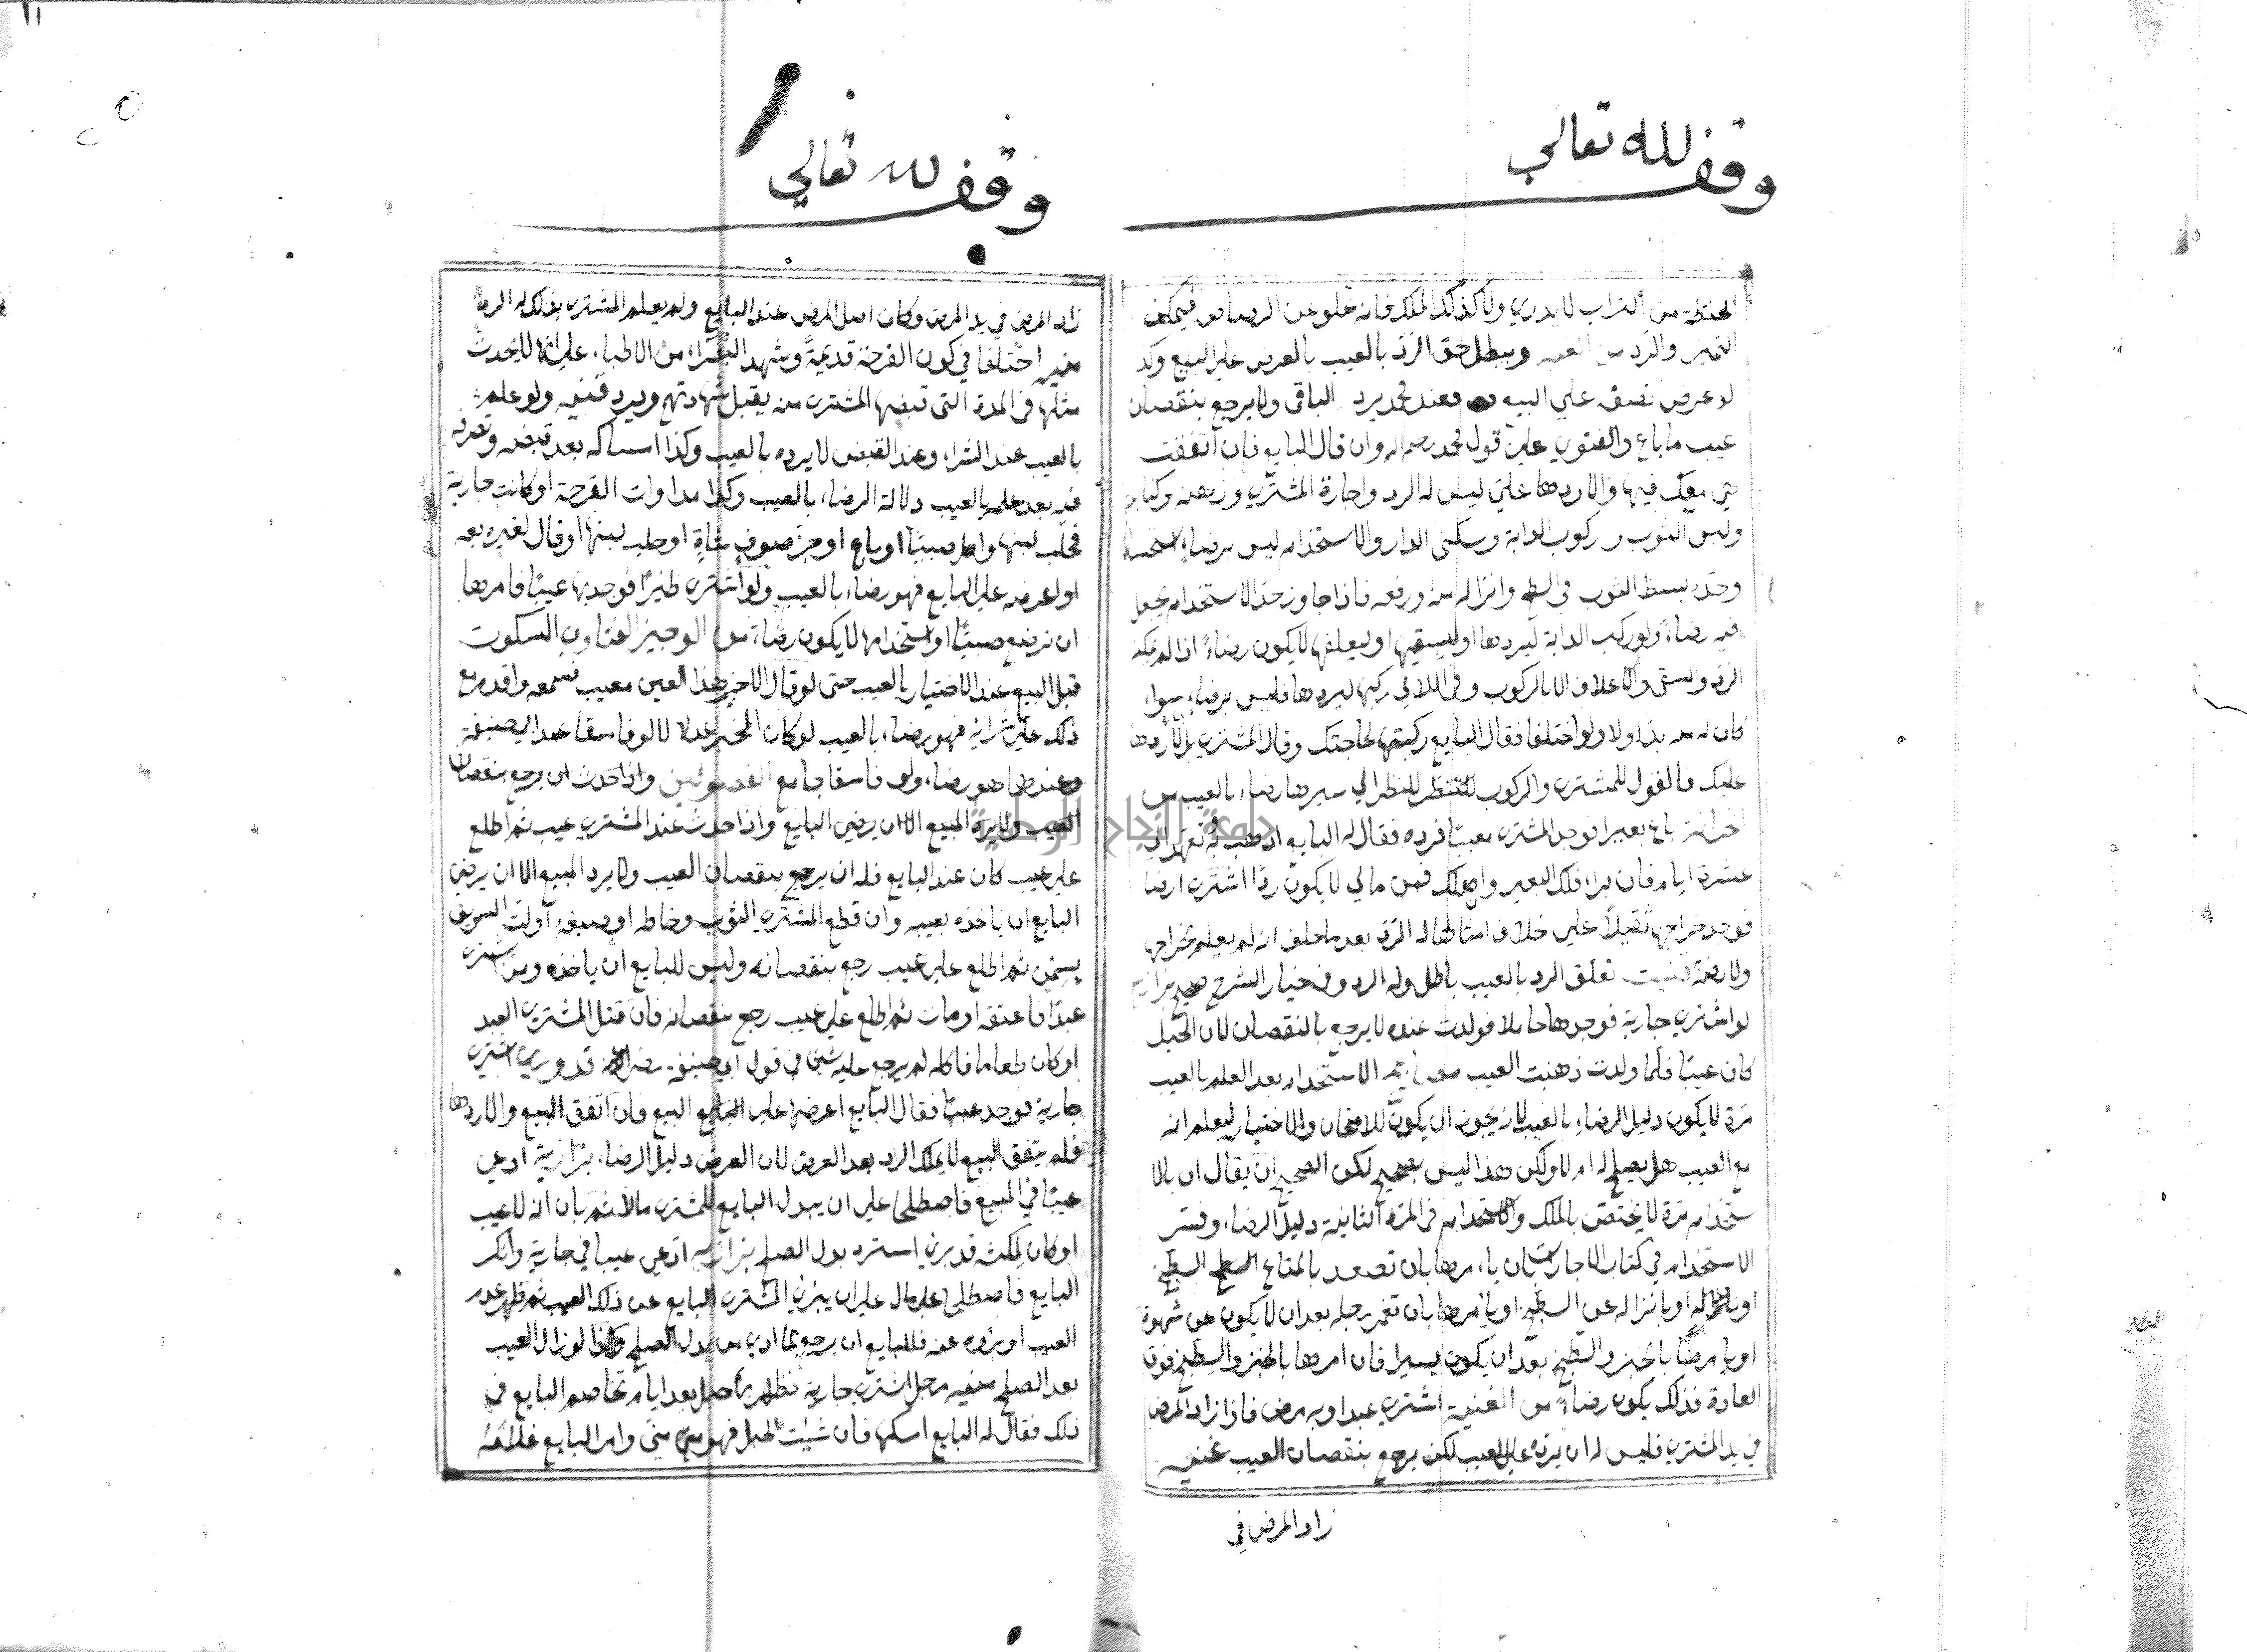 وقف لله تعالي
الحنطة من التراب لا يدري ولا كذلك الملك فانه تخلو عن الرصاص فيمكن
التميز والرد من ويبطل حق الرد بالعيب بالعرض علي البيع وكذ
لو عرض نصفه علي البيع وعند محمد يرد الباقي ولا يرجع بنقصان
عيب ما باع والفتوي علي قول محمد رحمه الله وان قال البايع فان اتفقت
معك فيها والا ردها علي ليس له الرد واجارة المشتري ورهنه
ولبس الثوب وركوب الدابة وسكني الدار والاستخدام ليس برضاء استحسانا
وحد بسط الثوب في السطح وانزاله منه ورفعه فاذا جاوز حد الاستخدام يجعل
فيه رضاء ولو ركب الدابة ليردها او ليسقيها او ليعلفها لا يكون رضاء اذا لم يمكنه
الرد والسقي والاعلاف الا بالركوب وفي اللالي ركبها ليردها فليس برضاء سوا
كان له منه بد اولا ولو اختلفا فقال البايع ركبتها لحاجتك وقال المشتري بل لاردها
عليك فالقول للمشتري والركوب للنظر الي سيرها رضاء بالعيب من
باع بعيرا فوجد المشتري معيبا فرده فقال له البايع اذهب به الي
عشرة ايام فان برا فلك البعير وان هلك فمن مالي لا يكون ردا اشتري ارضا
فوجد خراجها ثقيلا علي خلاف امثالها له الرد بعد ما حلف انه لم يعلم بخراجها
ولا تعلق الرد بالعيب باطل وله الرد وفي خيار الشرح صحيح بزازيه
لو اشتري جارية فوجدها حاملا فولدت عنده لا يرجع بالنقصان لان الحبل
كان عيبا فلما ولدت ذهبت العيب الاستخدام بعد العلم بالعيب
مرة لا يكون دليل الرضاء بالعيب لانه يجوز ان يكون للامتحان والاختيار ليعلم انه
مع العيب هل يصلح له ام لا ولكن هذا ليس بصحيح لكن الصحيح ان يقال ان بالا
ستخدام مرة لا يختص بالملك والاستخدام في المرة الثانية دليل الرضاء وفسر
الاستخدام في كتاب الاجارات بان يامرها بان تصعد بالمتاع السطح
او بانزاله عن السطح او يامرها بان تغمر رجله بعد ان لا يكون عن شهوة
او يامرها بالخبز والطبخ بعد ان يكون يسيرا فان امرها بالخبز والطبخ فوق
العادة فذلك يكون رضاء من الغنية اشتري عبدا وبه مرض فازاد المرض
في يد المشتري فليس له ان يرده علي العيب لكن يرجع بنقصان العيب غنيه
زاد المرض في
وقف لله تعالي
زاد المرض في يد المرض وكان اصل المرض عند البايع ولم يعلم المشتري بذلك له الرد
منيه اختلفا في كون القرحة قديمة وشهد من الاطباء علي انها لا يحدث
مثلها في المدة التي قبضها المشتري منه يقبل شهادتهم ويرد قنيه ولو علم
بالعيب عند الشراء وعند القبض لا يرده بالعيب وكذا امساكه بعد قبضه وتصرفه
فيه بعد علمه بالعيب دلالة الرضاء بالعيب وكذا مداوات القرحة او كانت جارية
فحلب لبنها صبيا او باع او جز صوف شاة او حلب لبنها او قال لغيره بعه
او اعرضه علي البايع فهو رضاء بالعيب ولو اشتري ظيرا فوجد بها عيبا فامرها
ان ترضع صبيا او استخدامها لا يكون رضاء من الوجيز الفتاوي السكوت
قبل البيع عند الاختيار بالعيب حتي لو قال الاخير هذا العين معيب فسمعه واقدم مع
ذلك علي شرائه فهو رضاء بالعيب لو كان المخبر عدلا لا لو فاسقا عند ابي حنيفة
وعندهما هو رضاء ولو فاسقا جامع الفصولين واذا حدث ان يرجع بنقصان
العيب ولا يرد المبيع الا ان يرضي البايع واذا حدث عند المشتري عيب ثم اطلع
علي عيب كان عند البايع فله ان يرجع بنقصان العيب ولا يرد المبيع الا ان يرضي
البايع ان ياخذه بعيبه وان قطع المشتري الثوب وخاطه او صبغه اولت السويق
بسمن ثم اطلع علي عيب رجع بنقصانه وليس للبايع ان ياخذه ومن اشتري
عبدا فاعتقه او مات ثم اطلع علي عيب رجع بنقصانه فان قتل المشتري العبد
او كان طعاما فاكله لم يرجع عليه شي في قول ابي حنيفة قدوري اشتري
جارية فوجد عيبا فقال البايع اعرضها علي البايع البيع فان اتفق البيع والا ردها
فلم يتفق البيع لا يملك الرد بعد العرض لان العرض دليل الرضاء بزازية ادعي
عيبا في المبيع فاصطلحا علي ان يبدل البايع للمشتري مالا ثم بان انه لا عيب
او كان لكنه قد بري استرد بدل الصلح بزازيه ادعي عيبا في جارية وانكر
البايع فاصطلحا علي مال علي ان يبري المشتري البايع عن ذلك العيب ثم ظهر عدم
العيب او بروه عنه فللبايع ان يرجع بما ادي من بدل الصلح وكذا لو زال العيب
بعد الصلح منيه رجل اشتري جارية فظهر بها حبل بعد ايام تخاصم البايع في
ذلك فقال له البايع امسكها فان شئت الحبل فهو مني وامر البايع غلامه
جامعة النجاح الوطنية